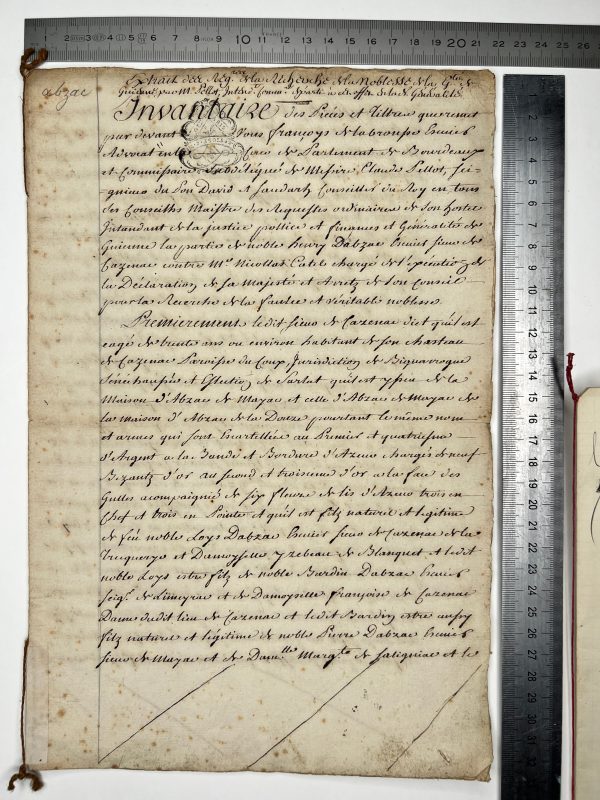 abzac
Extrait des Reg.res de la Recherche de la Noblesse de la G.té de
Guienne par Mr. Pellot, Intend.
Invantaire des Pieces et Tiltres que remet
par devant Vous françoys de la brousse Escuier
Advocat en la Cour de Parlement de Bourdeaux
et Commissaire Subdeliqué de Messire Claude Pellot, sei-
gnieur du Pon David et Sandartz Conseiller du Roy en tous
ses Conseilhs Maistre des Requestes ordinaires de son hostel
Intandant de la justice pollice et finances et Généralités de
Guienne la partie de noble henry Dabzac Escuier sieur de
Cazenac contre Me Nicollas Catel chargé de l'exécution de
la Déclaration de sa majesté et Arretz de son Conseil
pour la Recerche de la faulce et véritable noblesse
Premierement ledit sieur de Cazenac dict qu'il est
eagé de trente ans ou environ habitant de son chasteau
de Cazenac Paroisse du Coux, Jurisdiction de Bigarroque
Sénéchaussée et Eslection de Sarlat qu'il est yssu de la
Maison d'Abzac de Mayac et celle d'Abzac de Mayac de
la maison d'Abzac de la Douze pourtant le même nom
et armes qui sont Escartellées au Premier et quatriesme
d'Argent a la Bande et Bordure d'Azeur chargés de neuf
Bezantz d'or au second et troisieme d'or a la face de
Gulles acompaignée de six fleurs de lis d'Azeur trois en
Chef et trois en Pointe et qu'il est filz naturel et legitime
de feu noble Loys Dabzac Escuier sieur de Cazenac de la
et Damoyselle yzebeau de Blanquet et ledit
noble Loys estre filz de noble Bardin Dabzac Escuier
seig.r de Limeyrac et de Damoyselle françoise de Cazenac
Dame dudit lieu de Cazenac et ledit Bardin estre aussy
filz naturel et légitime de noble Pierre Dabzac Escuier
sieur de Mayac et de Dam.lle Marg.te de Salignac et le